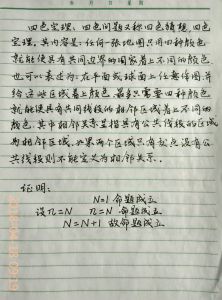 年 月 日 星期
四色定理:四色问题又称四色猜想,四色
定理。其内容是:任何一张地图只用四种颜色
就能使具有共同边界的国家着上不同的颜色
也可以表述为:在平面或球面上任意作图并
给这些区域着上颜色,最多只需要四种颜色
就能使具有共同线段的相邻区域着上不同的
颜色,其中相邻关系是指具有公共线段的区域
为相邻区域,如果两个区域只有交点没有公
共线段则不能定义为相邻关系.
证明:
N=1 命题成立
设n=N n=N 命题成立
N=N+1 故命题成立